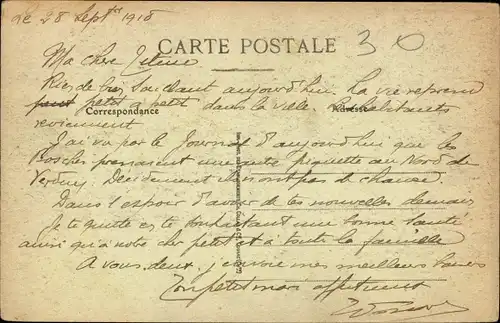 Le 28 Septbre 1918
CARTE POSTALE
30
Ma chère
Rien de bien saillant aujourd'hui. La vie reprend
petit à petit dans la ville. Les habitants
Correspondance
Adresse
reviennent
J'ai vu par le Journal d'aujourd'hui que les
Boches prennent une autre piquette au Nord de
Verdun. Décidement ils n'ont pas de chance.
Dans l'espoir d'avoir de tes nouvelles demain
je te quitte en te souhaitant une bonne santé
ainsi qu'à notre cher petit et à toute la famille
A vous deux j'envoie mes meilleurs baisers
Ton petit mari affectionné